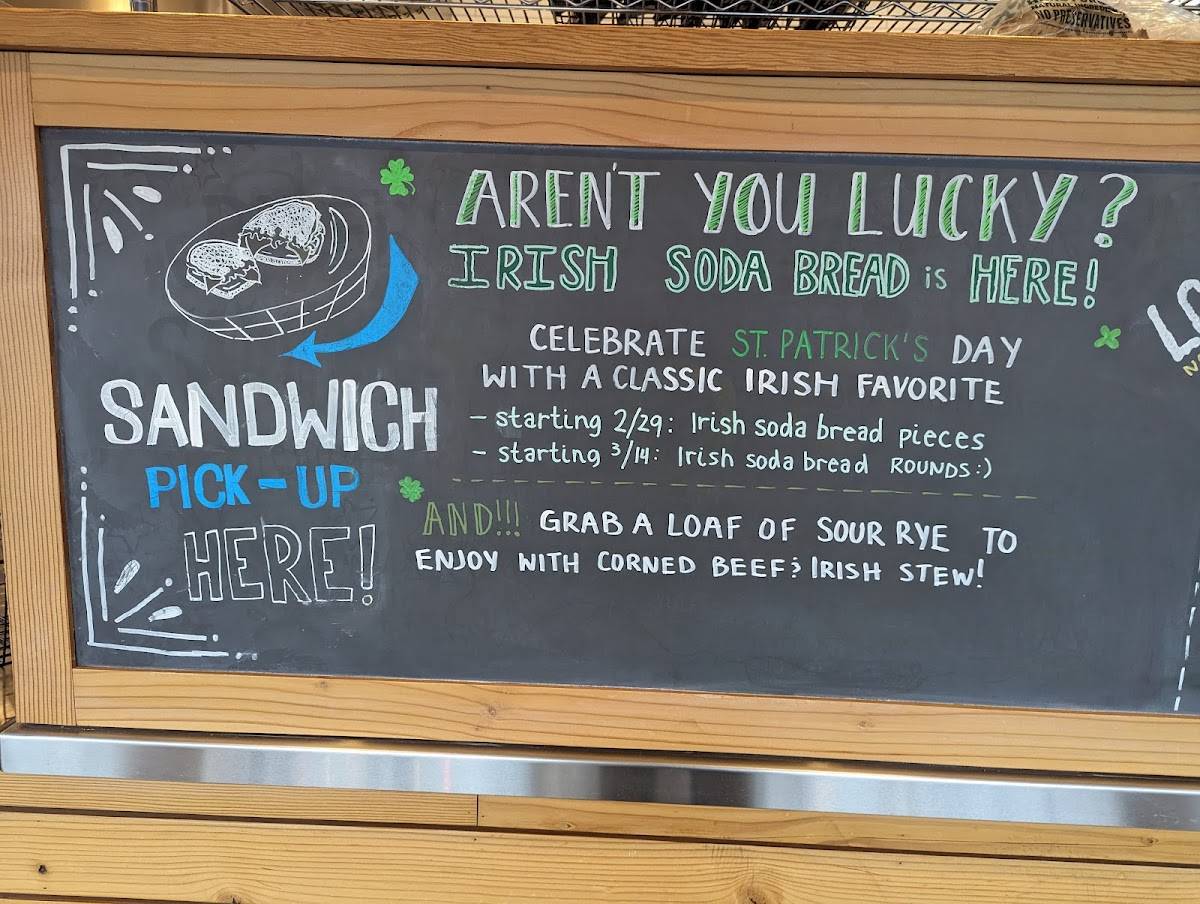 NO PRESERVATIVES
AREN'T YOU LUCKY?
IRISH SODA BREAD is HERE!
CELEBRATE ST. PATRICK'S DAY
WITH A CLASSIC IRISH FAVORITE
- starting 2/29: Irish soda bread pieces
- starting 3/14: Irish soda bread ROUNDS :)
AND!!! GRAB A LOAF OF SOUR RYE TO
ENJOY WITH CORNED BEEF & IRISH STEW!
SANDWICH
PICK-UP
HERE!